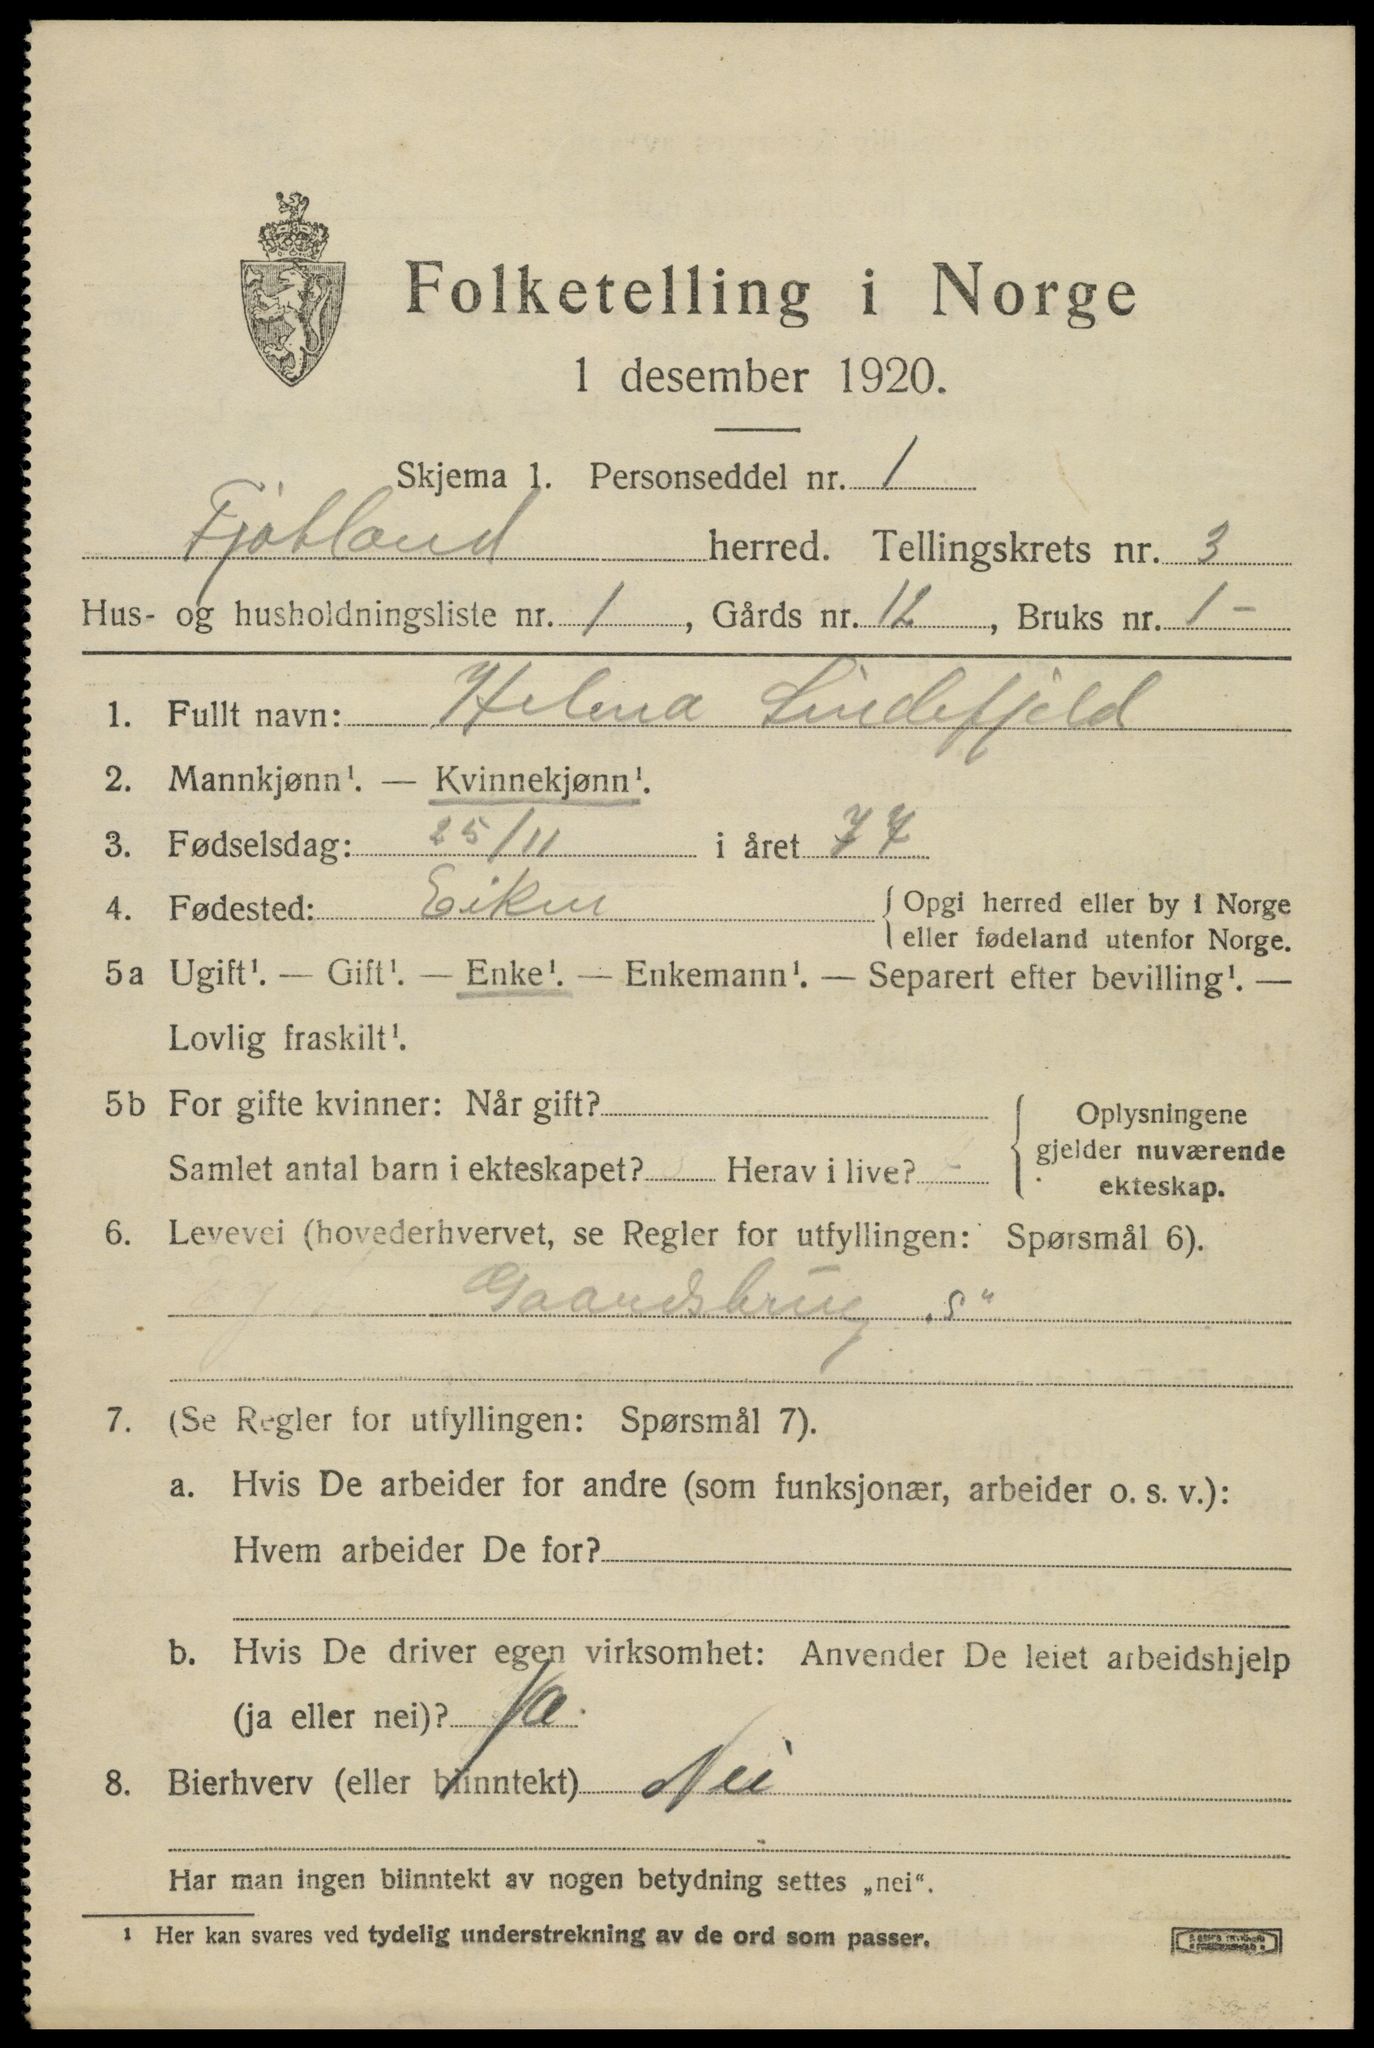 Folketelling i Norge
1 desember 1920.
Skjema 1. Personseddel nr. 1
Fjotland herred. Tellingskrets nr. 3
Hus- og husholdningsliste nr. 1, Gårds nr. 12, Bruks nr. 1 -
1. Fullt navn: Helena Lindefjeld
2. Mannkjønn¹. — Kvinnekjønn¹.
3. Fødselsdag: 25/11 i året 77
4. Fødested: Eiken { Opgi herred eller by i Norge
eller fødeland utenfor Norge.
5a Ugift¹. — Gift¹. — Enke¹. — Enkemann¹. — Separert efter bevilling¹. —
Lovlig fraskilt¹.
5b For gifte kvinner: Når gift?
Samlet antal barn i ekteskapet? Herav i live?
Oplysningene
gjelder nuværende
ekteskap.
6. Levevei (hovederhvervet, se Regler for utfyllingen: Spørsmål 6).
Gaardsbrug „S"
7. (Se Regler for utfyllingen: Spørsmål 7).
a. Hvis De arbeider for andre (som funksjonær, arbeider o. s. v.):
Hvem arbeider De for?
b. Hvis De driver egen virksomhet: Anvender De leiet arbeidshjelp
(ja eller nei)? Ja
8. Bierhverv (eller biinntekt) Nei
Har man ingen biinntekt av nogen betydning settes „nei".
¹ Her kan svares ved tydelig understrekning av de ord som passer.